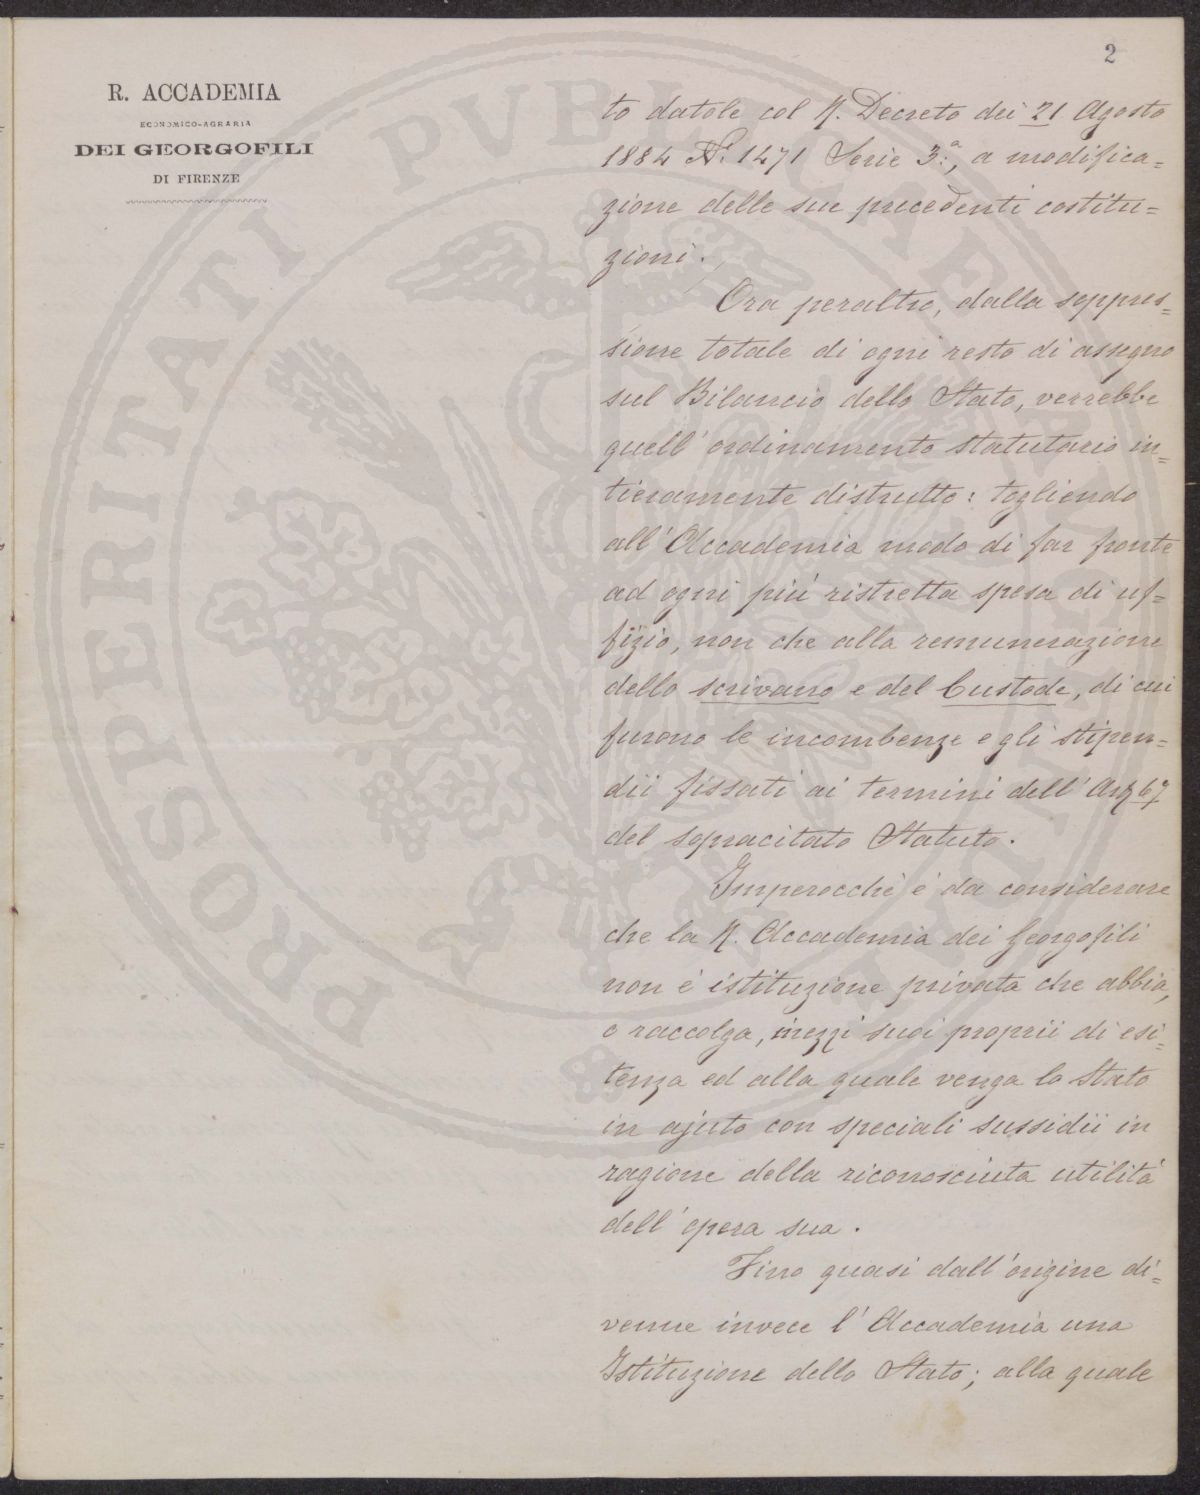 2
R. ACCADEMIA
ECONOMICO-AGRARIA
DEI GEORGOFILI
DI FIRENZE
PROSPERITATI PVBLICAE
to datole col R. Decreto dei 21 Agosto
1884 N.º 1471 Serie 3.ª, a modifica=
zione delle sue precedenti costitu=
zioni.
Ora peraltro, dalla soppres=
sione totale di ogni resto di assegno
sul Bilancio dello Stato, verrebbe
quell' ordinamento statutario in=
tieramente distrutto: togliendo
all' Accademia modo di far fronte
ad ogni più ristretta spesa di uf=
fizio, non che alla remunerazione
dello scrivano e del Custode, di cui
furono le incombenze e gli stipen=
dii fissati ai termini dell' Art 67
del sopracitato Statuto.
Imperocchè è da considerare
che la R. Accademia dei Georgofili
non è istituzione privata che abbia,
o raccolga, mezzi suoi proprii di esi=
tenza ed alla quale venga lo Stato
in ajuto con speciali sussidii in
ragione della riconosciuta utilità
dell' opera sua.
Fino quasi dall' origine di=
venne invece l' Accademia una
Istituzione dello Stato; alla quale